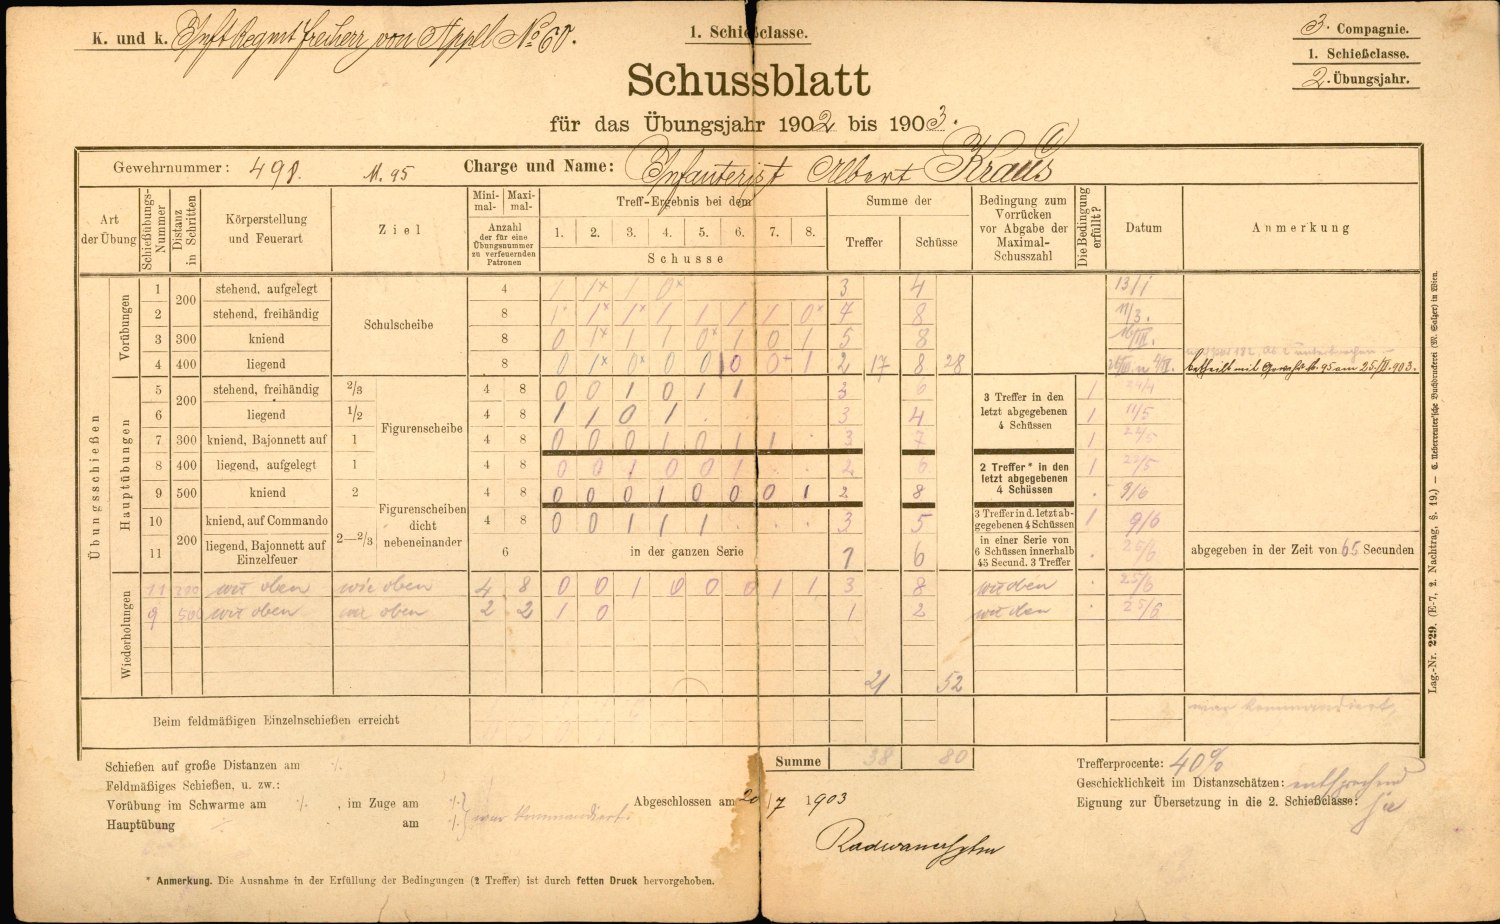 K. und k. Inft Regmt Freiherr von Appel No 60.
1. Schießclasse.
3. Compagnie.
1. Schießclasse.
2. Übungsjahr.
Schussblatt
für das Übungsjahr 1902 bis 1903.
Gewehrnummer: M. 95 Charge und Name: Infanterist Albert Kraus
Art der Übung
Schießübungs-Nummer
Distanz in Schritten
Körperstellung und Feuerart
Ziel
Mini-mal- Maxi-mal-
Anzahl der für eine Übungsnummer zu verfeuernden Patronen
Treff-Ergebnis bei dem
1. 2. 3. 4. 5. 6. 7. 8.
Schusse
Summe der
Treffer Schüsse
Bedingung zum Vorrücken vor Abgabe der Maximal-Schusszahl
Die Bedingung erfüllt?
Datum
Anmerkung
Übungsschießen
Vorübungen
1 200 stehend, aufgelegt Schulscheibe 4 1 1* 1 0* 3 4 13/1
2 stehend, freihändig 8 1 1* 1* 1 1 1 1 0* 8 11/3.
3 300 kniend 8 0 1* 1 1 0* 1 0 1 5 8
4 400 liegend 8 0 1* 0* 0 0 0 0 1 2 17 8 28
betheilt mit 95 am 903.
Hauptübungen
5 200 stehend, freihändig 2/3 Figurenscheibe 4 8 0 0 1 0 1 1 3 6 3 Treffer in den letzt abgegebenen 4 Schüssen 1
6 liegend 1/2 4 8 1 1 0 1 3 4 1 11/5
7 300 kniend, Bajonnett auf 1 4 8 0 0 0 1 0 1 1 3 7 1
8 400 liegend, aufgelegt 1 4 8 0 0 1 0 0 1 2 6 2 Treffer* in den letzt abgegebenen 4 Schüssen 1
9 500 kniend 2 Figurenscheiben dicht nebeneinander 4 8 0 0 0 1 0 0 0 1 2 8 9/6
10 200 kniend, auf Commando 2—2/3 4 8 0 0 1 1 1 3 5 3 Treffer in d. letzt abgegebenen 4 Schüssen 1 9/6
11 liegend, Bajonnett auf Einzelfeuer 6 in der ganzen Serie 6 in einer Serie von 6 Schüssen innerhalb 45 Secund. 3 Treffer abgegeben in der Zeit von 65 Secunden
Wiederholungen
11 200 wie oben wie oben 4 8 0 0 1 0 0 0 1 1 3 8 wie oben 25/6
9 500 wie oben wie oben 2 2 1 0 1 2 wie oben 25/6
21 52
Beim feldmäßigen Einzelnschießen erreicht
war kommandiert
Summe 38 80
Schießen auf große Distanzen am
Feldmäßiges Schießen, u. zw.:
Vorübung im Schwarme am , im Zuge am
Hauptübung am
war kommandiert.
Abgeschlossen am 20/7 1903
Trefferprocente: 40%
Geschicklichkeit im Distanzschätzen: entsprechend
Eignung zur Übersetzung in die 2. Schießclasse: ja
* Anmerkung. Die Ausnahme in der Erfüllung der Bedingungen (2 Treffer) ist durch fetten Druck hervorgehoben.
Lag.-Nr. 229. (E-7, 2. Nachtrag, §. 19.) — C. Ueberreuter'sche Buchdruckerei (M. Salzer) in Wien.